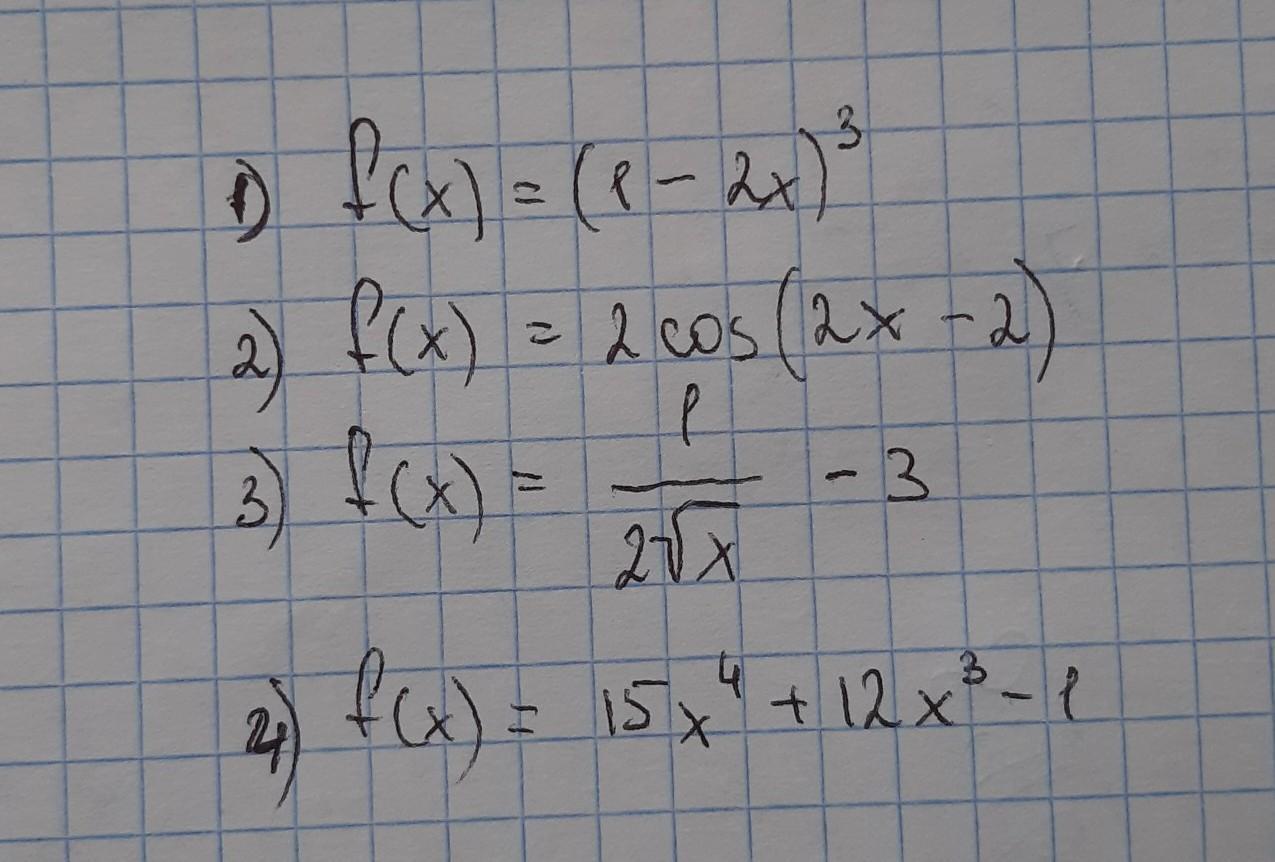 1) f(x) = (1 - 2x)³
2) f(x) = 2 cos(2x - 2)
3) f(x) = 1/(2√x) - 3
4) f(x) = 15x⁴ + 12x³ - 1